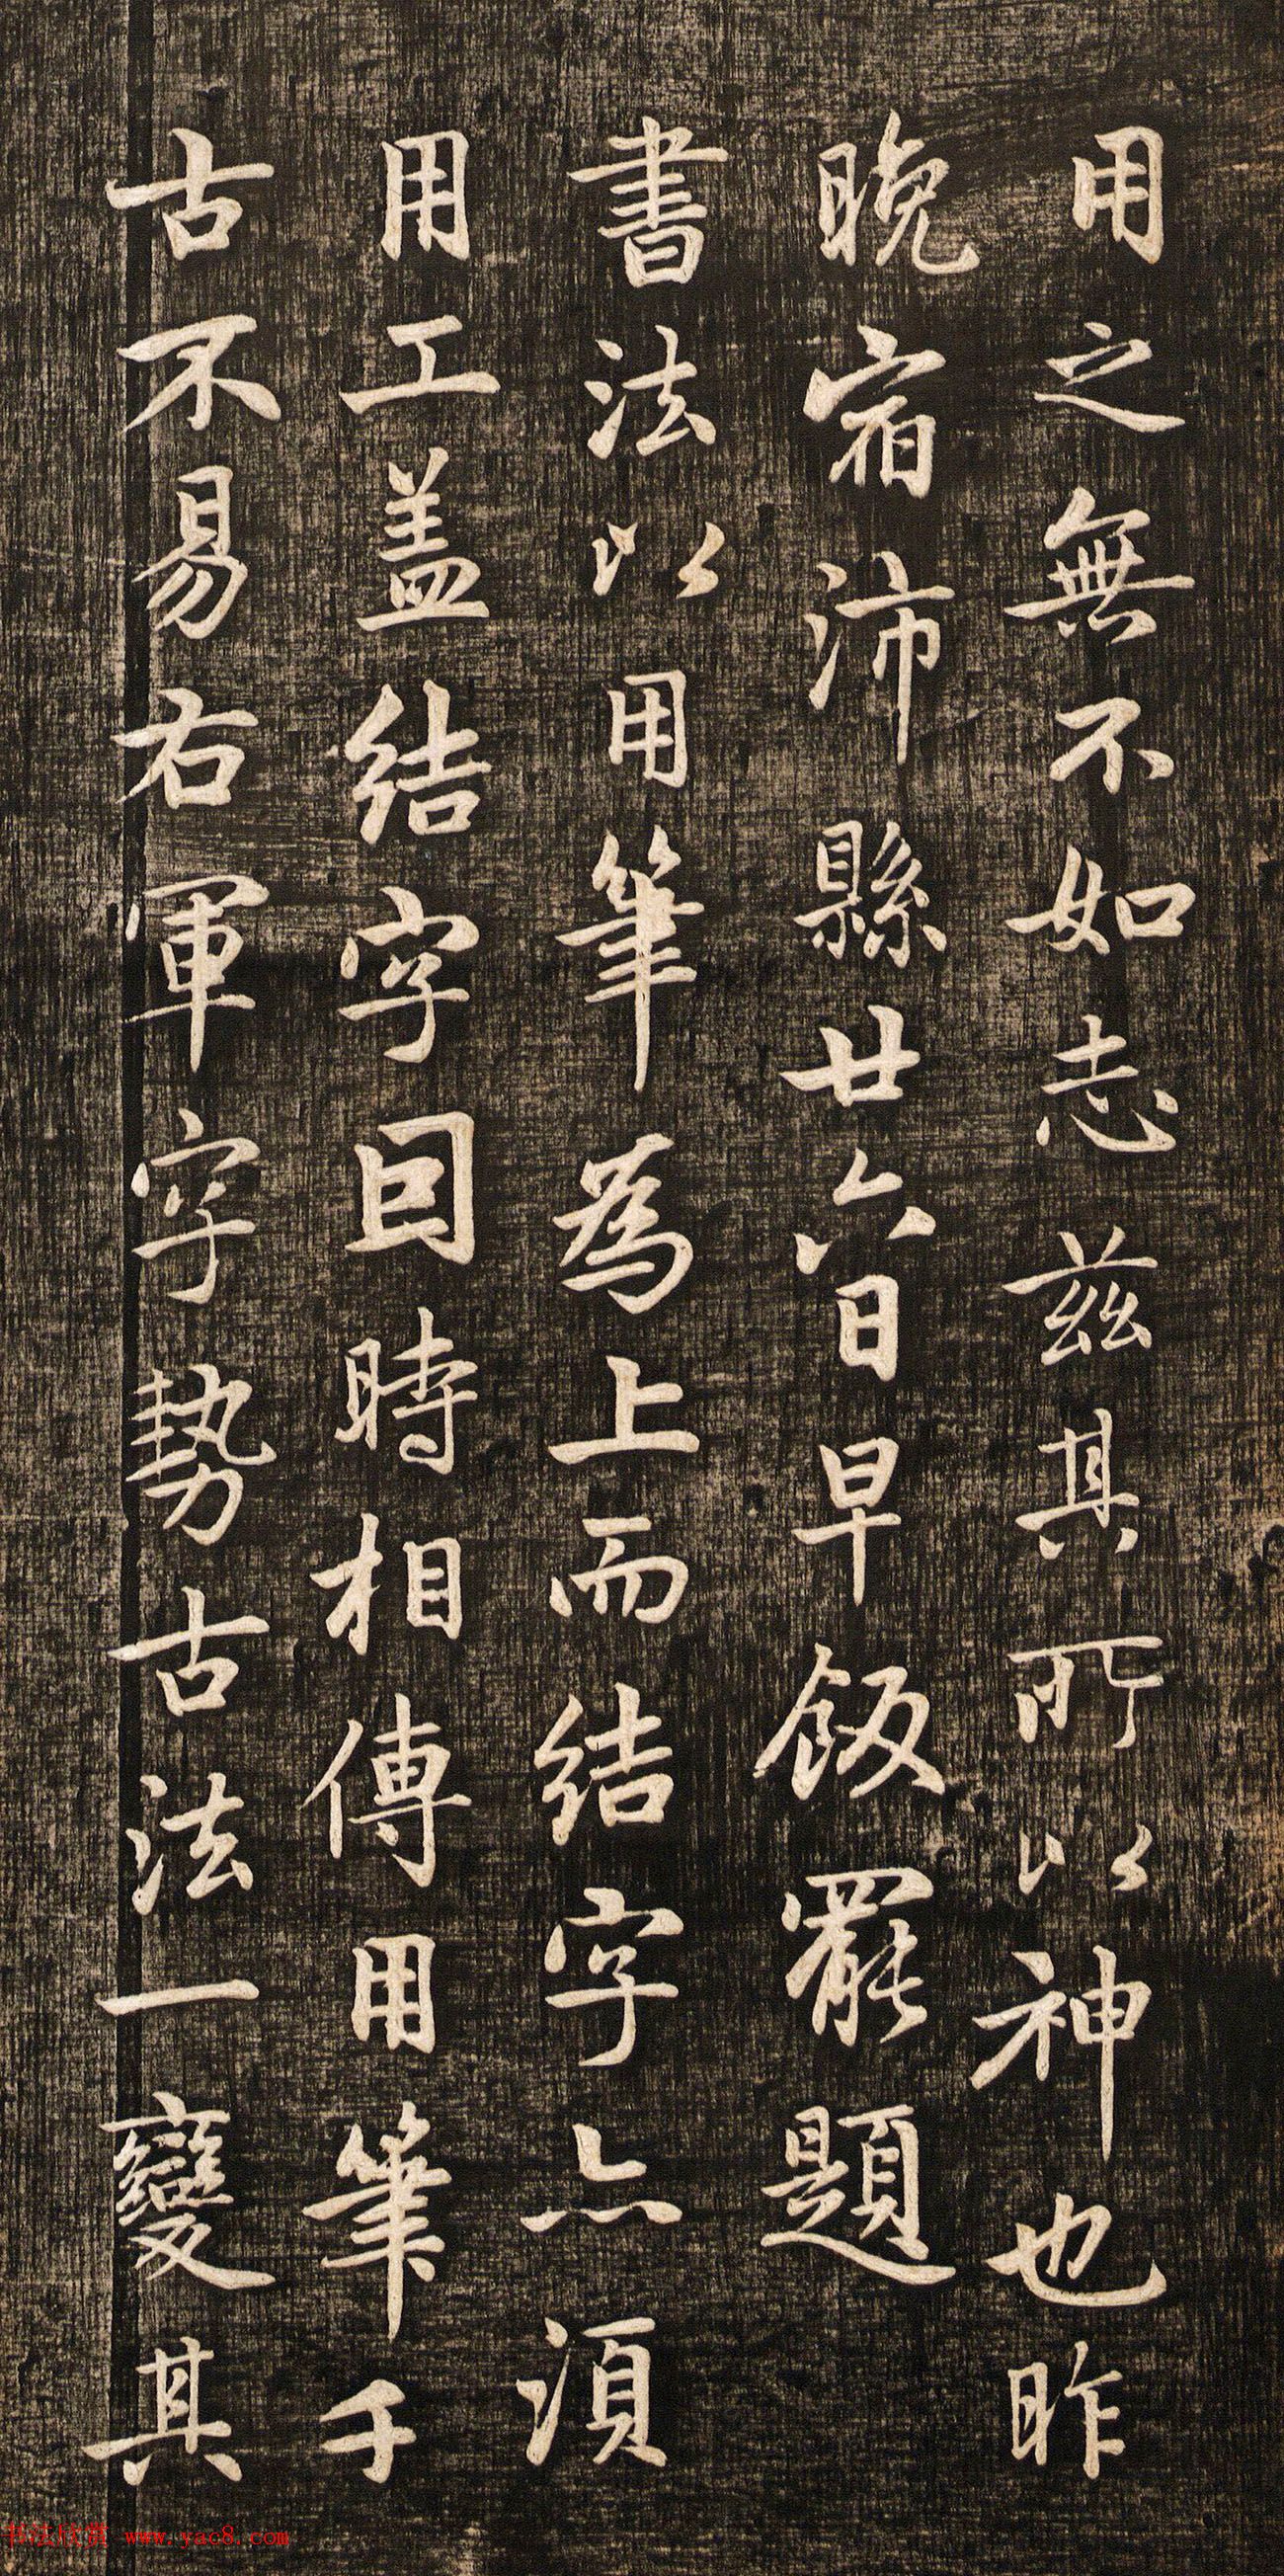 用之無不如志兹其所以神也昨
晚宿沛縣廿六日早飯罷題
書法以用筆為上而结字亦須
用工盖结字因時相傳用筆千
古不易右軍字勢古法一變其
书法欣赏 www.yac8.com